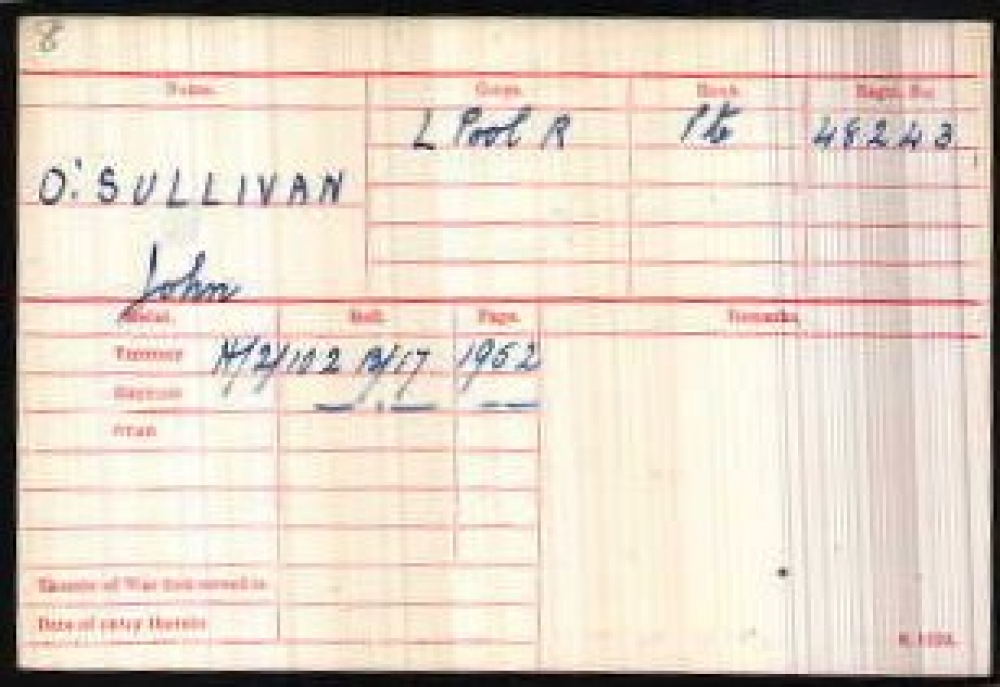 8
Name. Corps. Rank. Regtl. No.
L Pool R Pte 48243
O'SULLIVAN
John
Medal. Roll. Page. Remarks.
Victory H/2/102 B/17 1952
British — " — — —
STAR
Theatre of War first served in
Date of entry therein